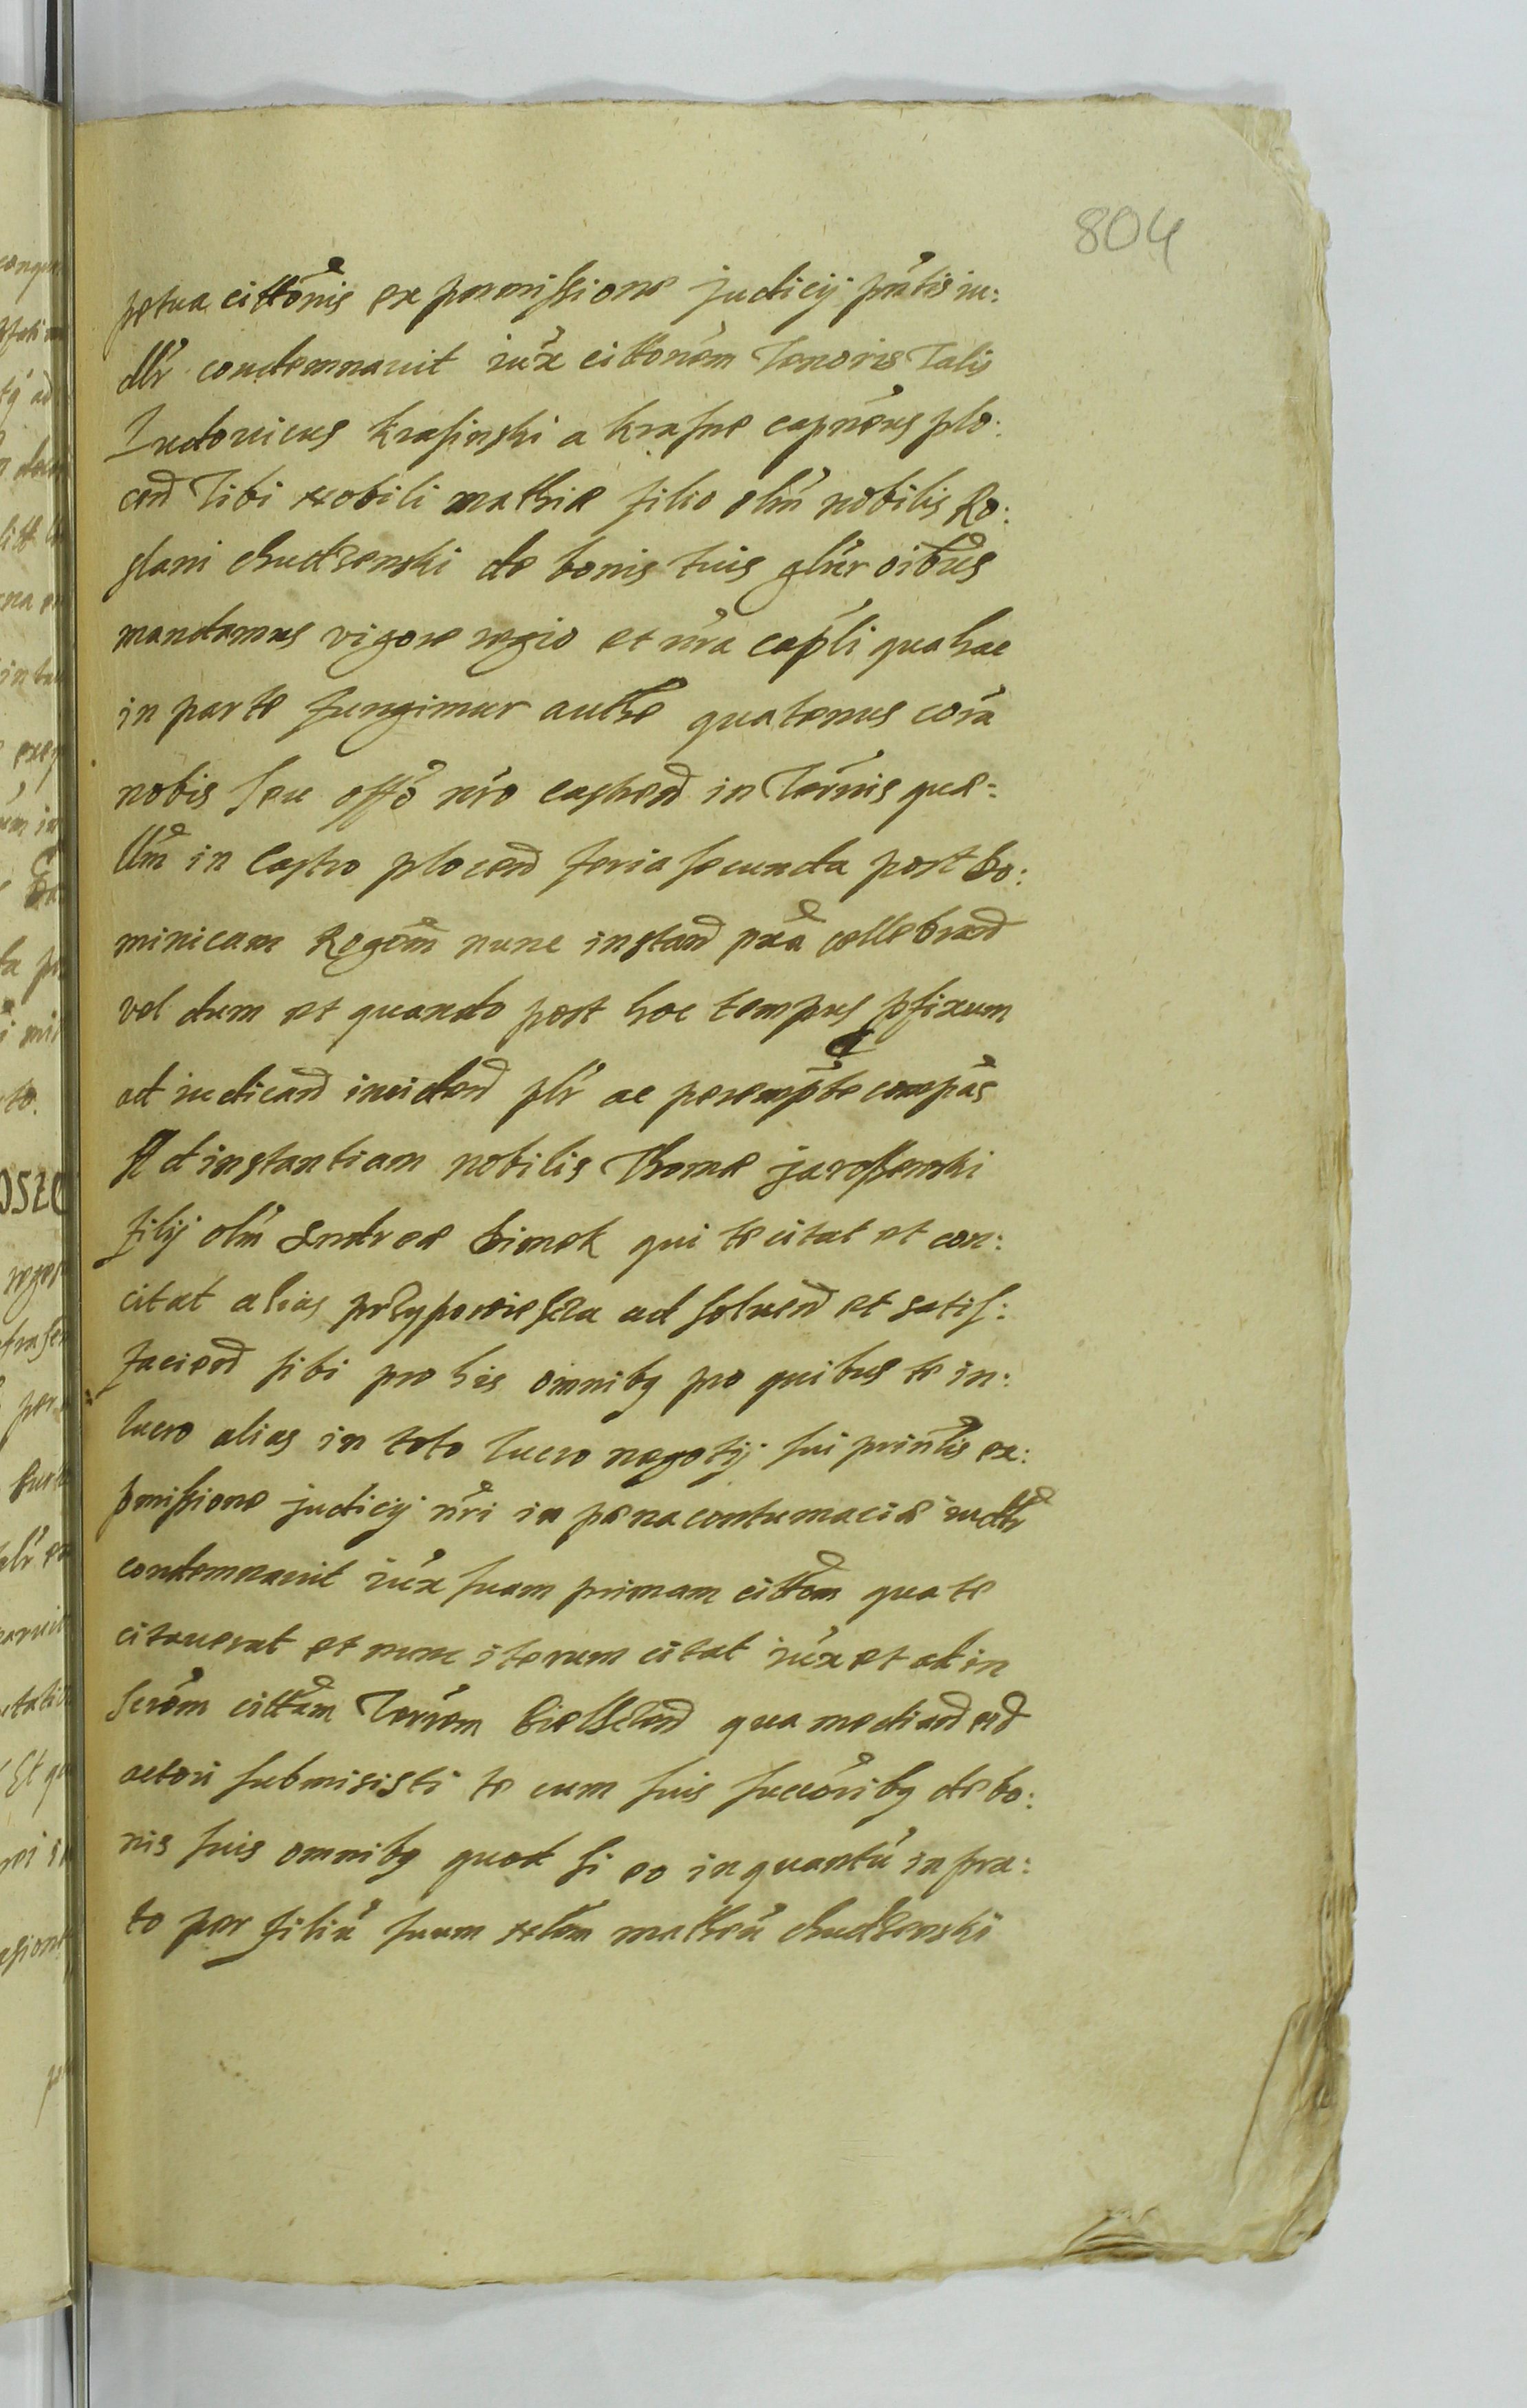 804
petua cittonis ex permissione judicij pntis iu:
dlr condemnauit iux cittonem Tenoris Talis
Ludouicus Krasinski a Krasne capneus plo:
cen Tibi nobili mathie filio olim nobilis Ro:
slani chudzenski de bonis tuis glnr oibus
mandamus vigore regio et nra capli qua hac
in parte fungimur authe quatenus cora
nobis seu offo nro castren in Termis que=
llm in Castro plocen feria secunda post Do:
minicam Rogom nunc instan pxa cellebran
vel dum et quando post hoc tempus pfixum
ad iudican inciden plr ac perempte compas
Ad instantiam nobilis Thome jaroszewski
filij olim Andree Bimek qui te citat et con:
citat alias przypowiescza ad soluen et satis:
facien sibi pro his omnibq pro quibus te in:
lucro alias in toto lucro negotij sui prinlis ex:
pmissione judicij nri in pena contumacie iudlr
condemnauit iux suam primam cittom qua te
citauerat et nunc iterum citat iux et ad in
serom cittam Terrem Bielscen qua median eid
actori submisisti te cum suis succoribq de bo:
nis suis omnibq quod si eo inquantu in pra:
to per filiu suum mattheu chudzenski